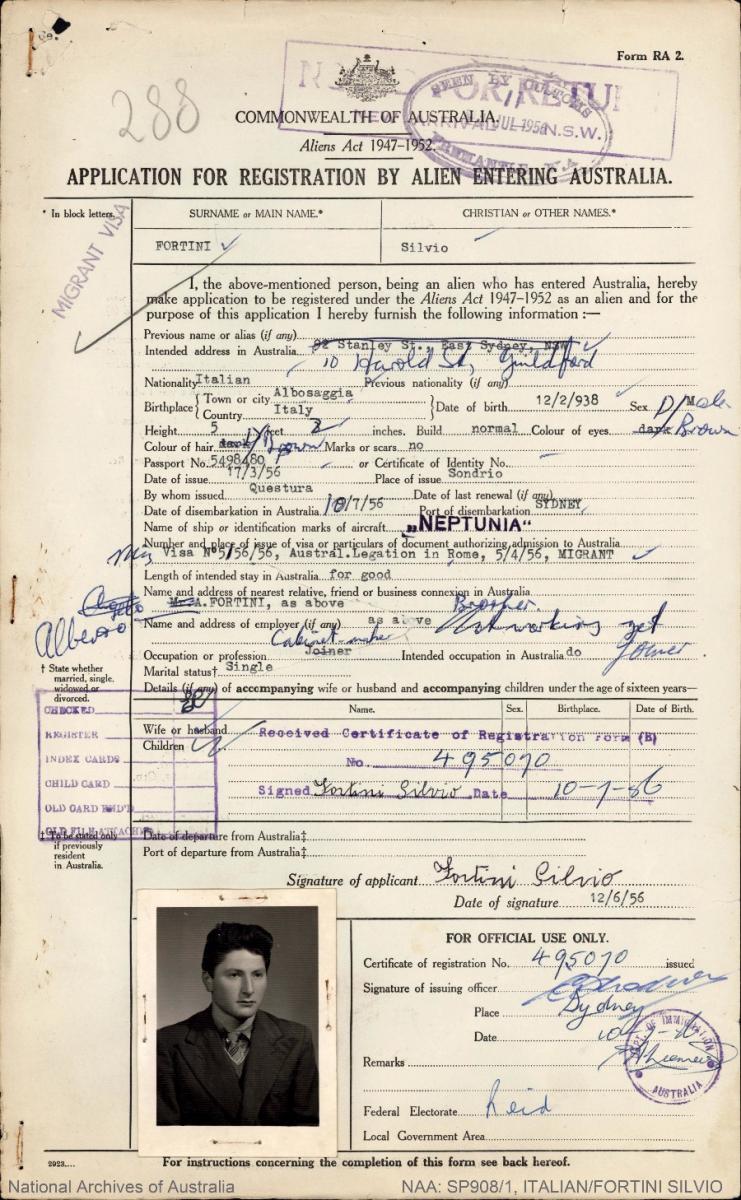 Form RA 2.
288
COMMONWEALTH OF AUSTRALIA.
SEEN BY CUSTOMS
11 JUL 1956
FREMANTLE, W.A.
ARRIVAL N.S.W.
Aliens Act 1947–1952.
APPLICATION FOR REGISTRATION BY ALIEN ENTERING AUSTRALIA.
* In block letters.
MIGRANT VISA
SURNAME or MAIN NAME.* CHRISTIAN or OTHER NAMES.*
FORTINI Silvio
I, the above-mentioned person, being an alien who has entered Australia, hereby
make application to be registered under the Aliens Act 1947–1952 as an alien and for the
purpose of this application I hereby furnish the following information :—
Previous name or alias (if any)
Intended address in Australia 92 Stanley St., East Sydney, NSW
10 Harold St, Guildford
Nationality Italian Previous nationality (if any)
Birthplace { Town or city Albosaggia
Country Italy } Date of birth 12/2/938 Sex Male
Height 5 feet 2 inches. Build normal Colour of eyes dark Brown
Colour of hair dark Brown Marks or scars no
Passport No. 5498480 or Certificate of Identity No.
Date of issue 17/3/56 Place of issue Sondrio
By whom issued Questura Date of last renewal (if any)
Date of disembarkation in Australia 10/7/56 Port of disembarkation SYDNEY
Name of ship or identification marks of aircraft „NEPTUNIA“
Number and place of issue of visa or particulars of document authorizing admission to Australia
Visa N°5/56/56, Austral.Legation in Rome, 5/4/56, MIGRANT
Length of intended stay in Australia for good
Name and address of nearest relative, friend or business connexion in Australia
Alberto
Mr. A.FORTINI, as above Brother
Name and address of employer (if any) as above Not working yet
Cabinet-maker
Occupation or profession Joiner Intended occupation in Australia do Joiner
† State whether married, single, widowed or divorced.
Marital status† Single
Details (if any) of accompanying wife or husband and accompanying children under the age of sixteen years—
Name. Sex. Birthplace. Date of Birth.
Wife or husband
Children
Received Certificate of Registration Form (B)
No. 495070
Signed Fortini Silvio Date 10-7-56
CHECKED
REGISTER
INDEX CARDS
CHILD CARD
OLD CARD REQ'D
OLD FILE ATTACHED
‡ To be stated only if previously resident in Australia.
Date of departure from Australia‡
Port of departure from Australia‡
Signature of applicant Fortini Silvio
Date of signature 12/6/56
FOR OFFICIAL USE ONLY.
Certificate of registration No. 495070 issued
Signature of issuing officer
Place Sydney
Date 10-7-56
Remarks
DEPT. OF IMMIGRATION
AUSTRALIA
Federal Electorate Reid
Local Government Area
2923....
For instructions concerning the completion of this form see back hereof.
National Archives of Australia
NAA: SP908/1, ITALIAN/FORTINI SILVIO